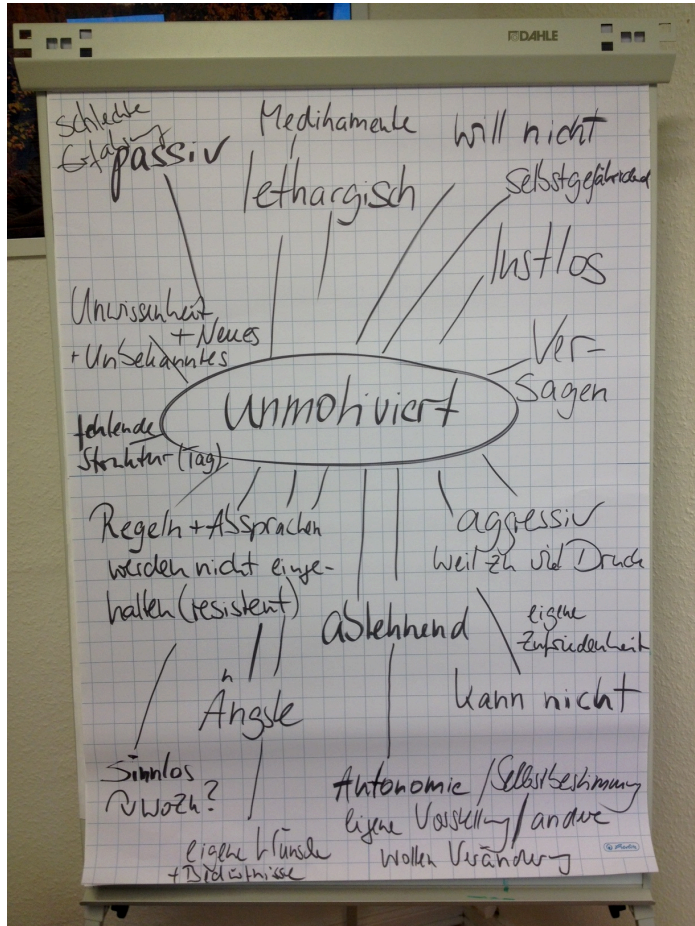 DAHLE
schlechte
Erfahrung
passiv
Medikamente
lethargisch
will nicht
selbstgefährdend
lustlos
Ver-
sagen
Unwissenheit
+ Neues
+ Unbekanntes
unmotiviert
fehlende
Struktur (Tag)
Regeln + Absprachen
werden nicht einge-
halten (resistent)
aggressiv
weil zu viel Druck
ablehnend
eigene
Zufriedenheit
kann nicht
Ängste
Sinnlos
~ wozu?
Autonomie / Selbstbestimmung
eigene Vorstellung / andere
wollen Veränderung
eigene Wünsche
+ Bedürfnisse